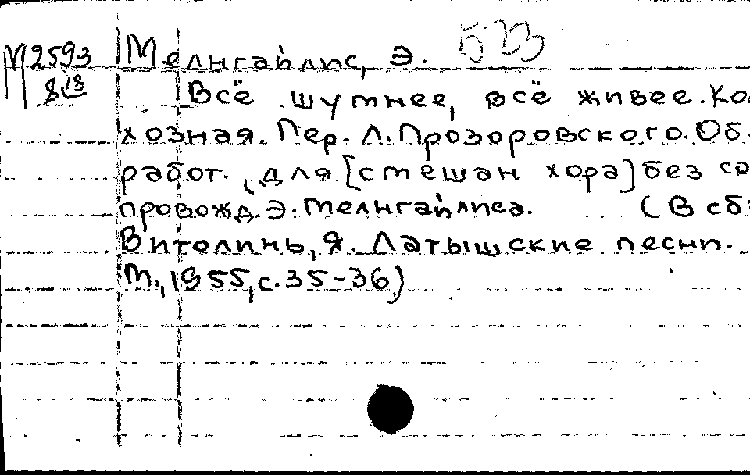 М2593 Мелнгайлис, Э. 523
813
Всё шумнее, всё живее. Кол
хозная. Пер. Л. Прозоровского. Об
работ. для [смешан хора] без со
провожд. Э. Мелнгайлиса. (В сб:
Витолинь, Я. Латышские песни.
М., 1955, с. 35-36)